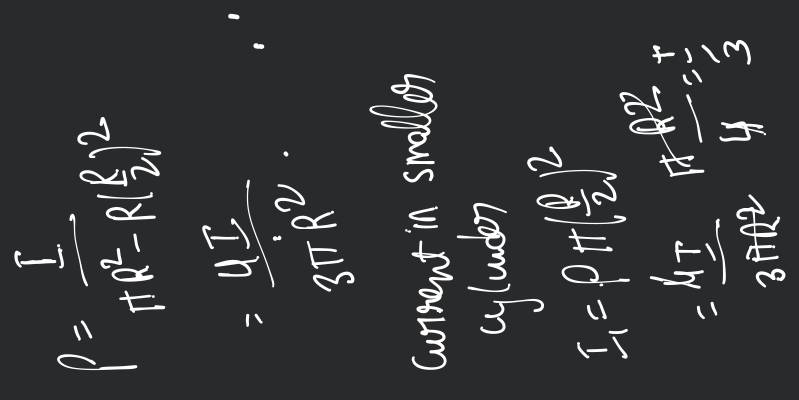 ρ = I / (πR² - R(R/2)²
= 4I / 3πR²
Current in smaller
cylinder
I₁ = ρ π(R/2)²
= 4I / 3πR² πR² / 4 = I / 3